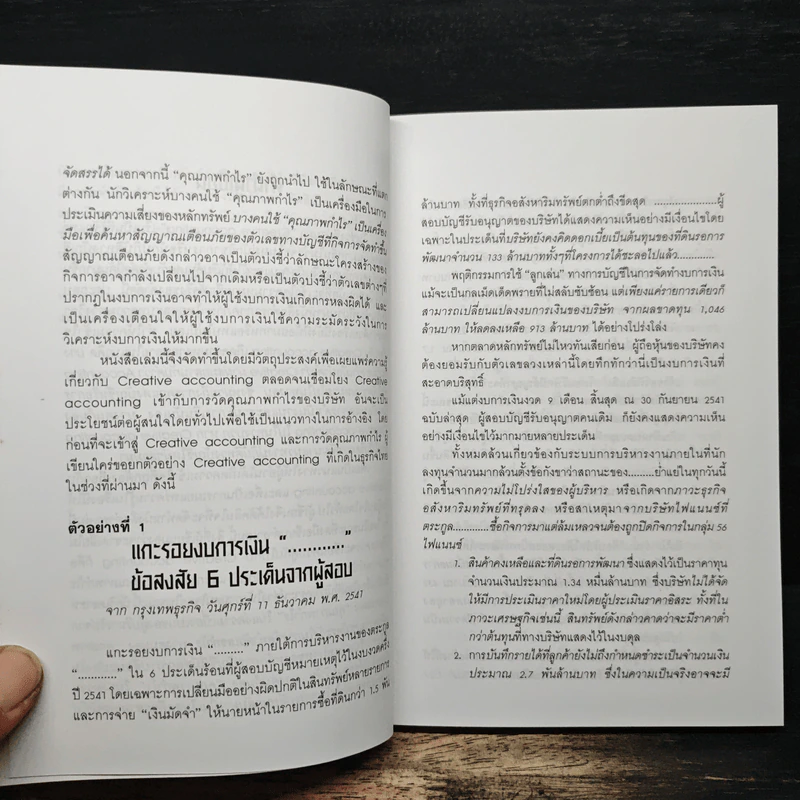 จัดสรรได้ นอกจากนี้ “คุณภาพกำไร” ยังถูกนำไป ใช้ในลักษณะที่แตก
ต่างกัน นักวิเคราะห์บางคนใช้ “คุณภาพกำไร” เป็นเครื่องมือในการ
ประเมินความเสี่ยงของหลักทรัพย์ บางคนใช้ “คุณภาพกำไร” เป็นเครื่อง
มือเพื่อค้นหาสัญญาณเตือนภัยของตัวเลขทางบัญชีที่กิจการจัดทำขึ้น
สัญญาณเตือนภัยดังกล่าวอาจเป็นตัวบ่งชี้ว่าลักษณะโครงสร้างของ
กิจการอาจกำลังเปลี่ยนไปจากเดิมหรือเป็นตัวบ่งชี้ว่าตัวเลขต่างๆที่
ปรากฏในงบการเงินอาจทำให้ผู้ใช้งบการเงินเกิดการหลงผิดได้ และ
เป็นเครื่องเตือนใจให้ผู้ใช้งบการเงินใช้ความระมัดระวังในการ
วิเคราะห์งบการเงินให้มากขึ้น
หนังสือเล่มนี้จึงจัดทำขึ้นโดยมีวัตถุประสงค์เพื่อเผยแพร่ความรู้
เกี่ยวกับ Creative accounting ตลอดจนเชื่อมโยง Creative
accounting เข้ากับการวัดคุณภาพกำไรของบริษัท อันจะเป็น
ประโยชน์ต่อผู้สนใจโดยทั่วไปเพื่อใช้เป็นแนวทางในการอ้างอิง โดย
ก่อนที่จะเข้าสู่ Creative accounting และการวัดคุณภาพกำไร ผู้
เขียนใคร่ขอยกตัวอย่าง Creative accounting ที่เกิดในธุรกิจไทย
ในช่วงที่ผ่านมา ดังนี้
ตัวอย่างที่ 1
แกะรอยงบการเงิน “............”
ข้อสงสัย 6 ประเด็นจากผู้สอบ
จาก กรุงเทพธุรกิจ วันศุกร์ที่ 11 ธันวาคม พ.ศ. 2541
แกะรอยงบการเงิน “.........” ภายใต้การบริหารงานของตระกูล
“............” ใน 6 ประเด็นร้อนที่ผู้สอบบัญชีหมายเหตุไว้ในงบงวดครึ่ง
ปี 2541 โดยเฉพาะการเปลี่ยนมืออย่างผิดปกติในสินทรัพย์หลายรายการ
และการจ่าย “เงินมัดจำ” ให้นายหน้าในรายการซื้อที่ดินกว่า 1.5 พัน
ล้านบาท ทั้งที่ธุรกิจอสังหาริมทรัพย์ตกต่ำถึงขีดสุด .....................ผู้
สอบบัญชีรับอนุญาตของบริษัทได้แสดงความเห็นอย่างมีเงื่อนไขโดย
เฉพาะในประเด็นที่บริษัทยังคงคิดดอกเบี้ยเป็นต้นทุนของที่ดินรอการ
พัฒนาจำนวน 133 ล้านบาททั้งๆที่โครงการได้ชะลอไปแล้ว.............
พฤติกรรมการใช้ “ลูกเล่น” ทางการบัญชีในการจัดทำงบการเงิน
แม้จะเป็นกลเม็ดเด็ดพรายที่ไม่สลับซับซ้อน แต่เพียงแค่รายการเดียวก็
สามารถเปลี่ยนแปลงงบการเงินของบริษัท จากผลขาดทุน 1,046
ล้านบาท ให้ลดลงเหลือ 913 ล้านบาท ได้อย่างโปร่งโล่ง
หากตลาดหลักทรัพย์ไม่ไหวทันเสียก่อน ผู้ถือหุ้นของบริษัทคง
ต้องยอมรับกับตัวเลขลวงเหล่านี้โดยทึกทักว่านี่เป็นงบการเงินที่
สะอาดบริสุทธิ์
แม้แต่งบการเงินงวด 9 เดือน สิ้นสุด ณ 30 กันยายน 2541
ฉบับล่าสุด ผู้สอบบัญชีรับอนุญาตคนเดิม ก็ยังคงแสดงความเห็น
อย่างมีเงื่อนไขไว้มากมายหลายประเด็น
ทั้งหมดล้วนเกี่ยวข้องกับระบบการบริหารงานภายในที่นัก
ลงทุนจำนวนมากล้วนตั้งข้อกังขาว่าสถานะของ.......ย่ำแย่ในทุกวันนี้
เกิดขึ้นจากความไม่โปร่งใสของผู้บริหาร หรือเกิดจากภาวะธุรกิจ
อสังหาริมทรัพย์ที่ทรุดลง หรือสาเหตุมาจากบริษัทไฟแนนซ์ที่
ตระกูล.......ซื้อกิจการมาแต่ล้มเหลวจนต้องถูกปิดกิจการในกลุ่ม 56
ไฟแนนซ์
1. สินค้าคงเหลือและที่ดินรอการพัฒนา ซึ่งแสดงไว้เป็นราคาทุน
จำนวนเงินประมาณ 1.34 หมื่นล้านบาท ซึ่งบริษัทไม่ได้จัด
ให้มีการประเมินราคาใหม่โดยผู้ประเมินราคาอิสระ ทั้งที่ใน
ภาวะเศรษฐกิจเช่นนี้ สินทรัพย์ดังกล่าวคาดว่าจะมีราคาต่ำ
กว่าต้นทุนที่ทางบริษัทแสดงไว้ในงบดุล
2. การบันทึกรายได้ที่ลูกค้ายังไม่ถึงกำหนดชำระเป็นจำนวนเงิน
ประมาณ 2.7 พันล้านบาท ซึ่งในความเป็นจริงอาจจะมี